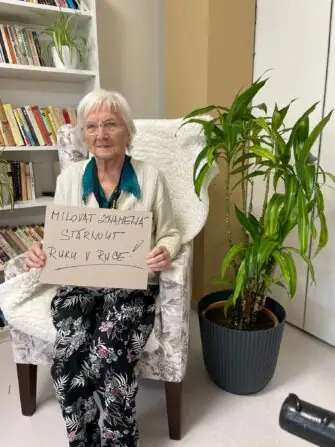 MILOVAT ZNAMENÁ
STÁRNOUT
RUKU V RUCE!